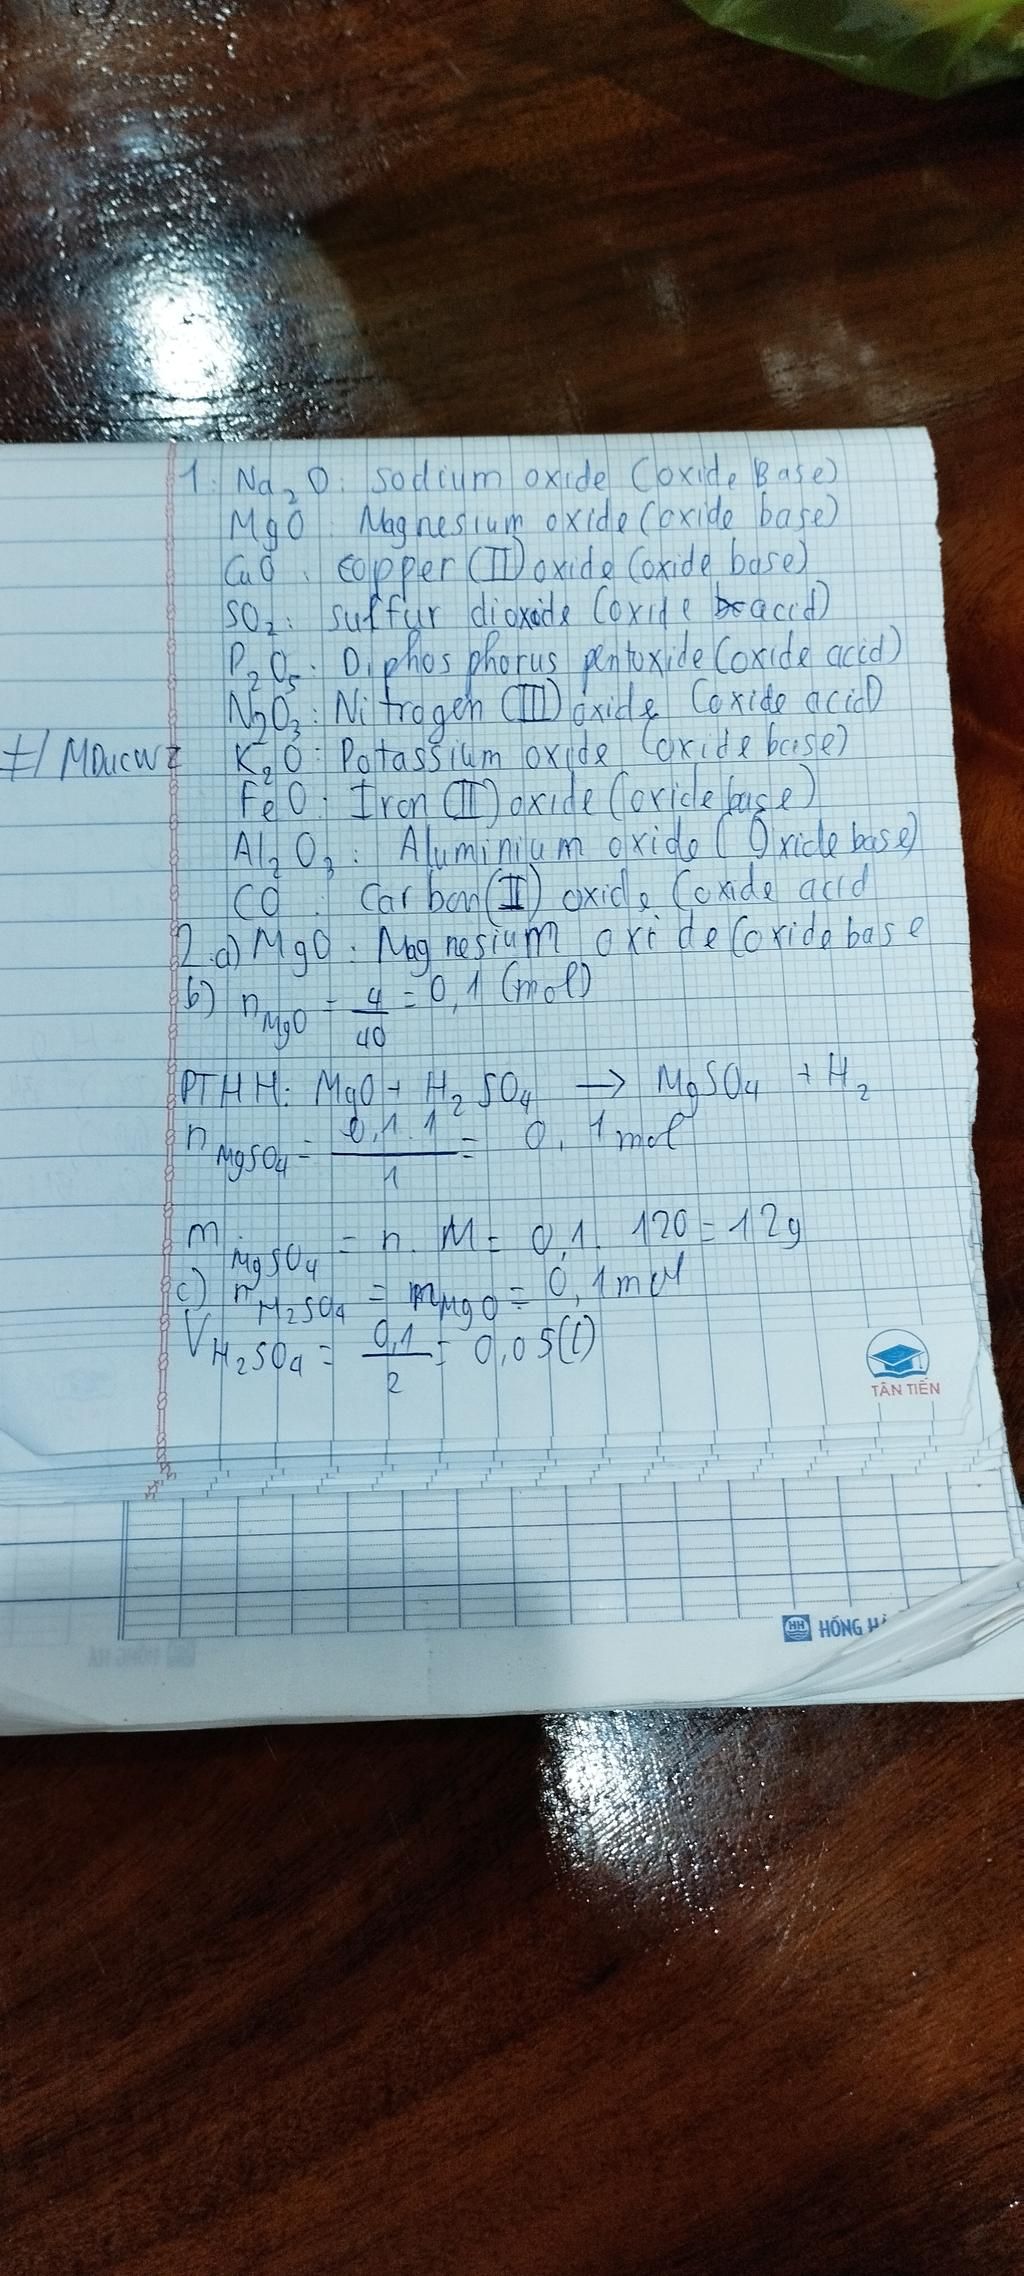 1. Na2O: Sodium oxide (oxide Base)
MgO: Magnesium oxide (oxide base)
CuO: copper (II) oxide (oxide base)
SO2: sulfur dioxide (oxide acid)
P2O5: Diphosphorus pentoxide (oxide acid)
N2O3: Nitrogen (III) oxide (oxide acid)
K2O: Potassium oxide (oxide base)
FeO: Iron (II) oxide (oxide base)
Al2O3: Aluminium oxide (Oxide base)
CO: Carbon (II) oxide (oxide acid
2.a) MgO: Magnesium oxide (oxide base
b) nMgO = 4/40 = 0,1 (mol)
PTHH: MgO + H2SO4 → MgSO4 + H2
nMgSO4 = 0,1.1/1 = 0,1 mol
mMgSO4 = n. M = 0,1. 120 = 12g
c) nH2SO4 = mMgO = 0,1 mol
VH2SO4 = 0,1/2 = 0,05 (l)
TÂN TIẾN
HH HỒNG